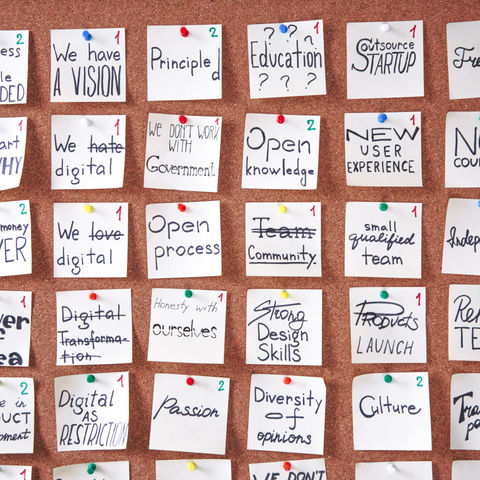 ess
2
le
DED
1
We have
A VISION
2
Principled
1
? ? ?
Education
? ? ?
1
Outsource
STARTUP
Fre
1
art
WHY
1
We hate
digital
1
WE DON'T WORK
WITH
Government
2
Open
knowledge
1
NEW
USER
EXPERIENCE
NO
COU
2
money
VER
1
We love
digital
2
Open
process
1
Team
Community
1
small
qualified
team
Indep
1
ver
of
ea
Digital
Transforma-
tion
1
Honesty with
ourselves
1
Strong
Design
Skills
1
Products
LAUNCH
Re
TE
2
e in
DUCT
pment
1
Digital
AS
RESTRICTION
2
Passion
2
Diversity
of
opinions
2
Culture
Tra
po
1
1
2
1
WE DON'T
2